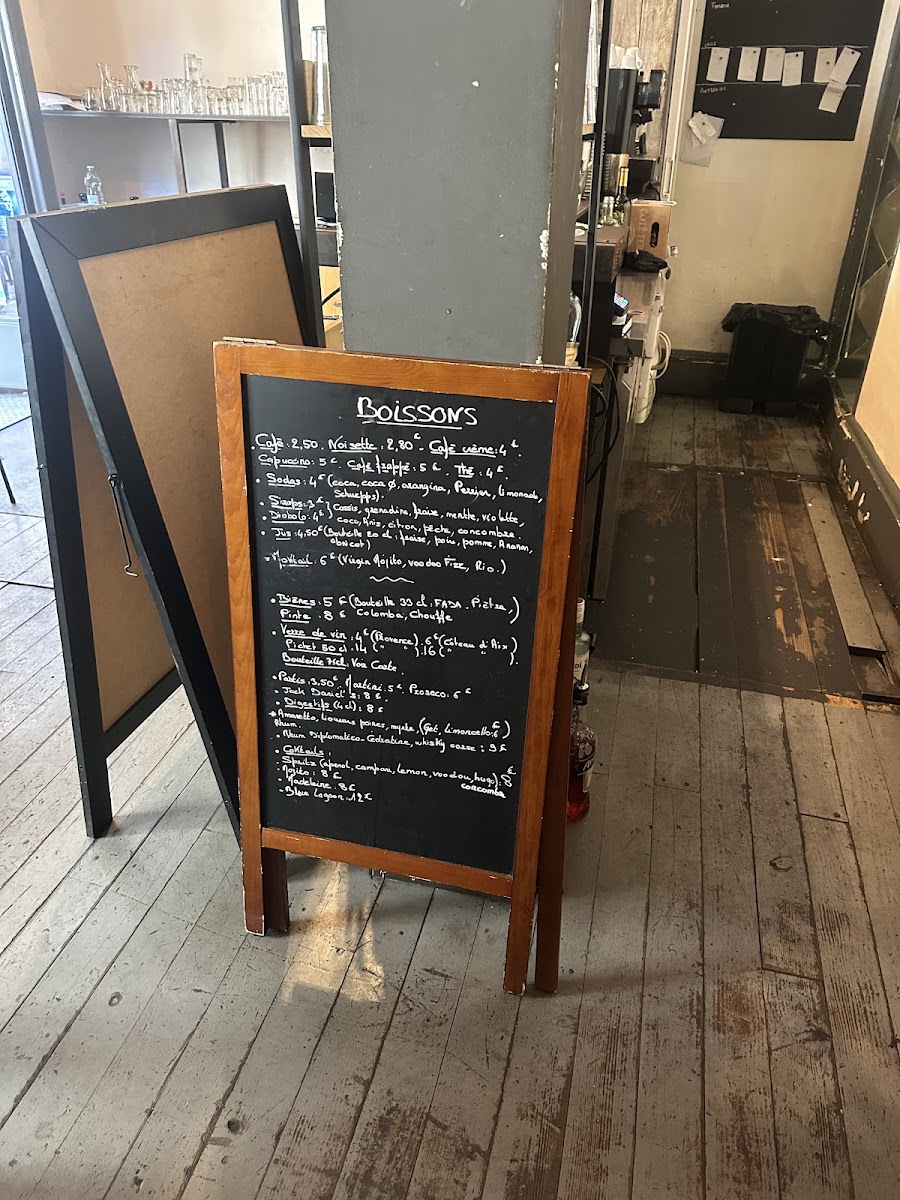 BOISSONS
Café : 2,50. Noisette : 2,80€ - Café crème : 4€.
Capuccino : 5€. Café frappé : 5€. Thé : 4€.
• Sodas : 4€ (coca, coca Ø, orangina, Perrier, limonade,
Schwepps).
Sirops : 3€ } Cassis, grenadine, fraise, menthe, violette,
• Diabolo : 4€ } coco, Anis, citron, pêche, concombre.
• Jus : 4,50€ (Bouteille 20 cl : fraise, poire, pomme, Ananas,
abricot)
- Mocktail : 6€ (Virgin Mojito, voodoo Fizz, Rio.)
• Bières : 5 € (Bouteille 33 cl : FADA, Piètra,)
Pinte : 8 € Colomba, Chouffe
• Verre de vin : 4€ (Provence). 6€ (Côteau d'Aix)
Pichet 50 cl : 14 ( " " ). 16 ( " " ).
Bouteille 75cl : Voir Carte.
• Pastis : 3,50€ Martini : 5€. Proseco : 6 €
- Jack Daniel's : 8 €
• Digestifs (4 cl) : 8 €
Amaretto, poires, myrte, (Get, limoncello : 6€)
Rhum.
• Rhum Diplomatico - Cédratine, whisky corse : 9 €
• Coktails :
- Spritz (aperol, campari, lemon, voodou, hugo) : 8€
- Mojito : 8 €
- Madeleine : 8€
- Blue Lagoon : 12€